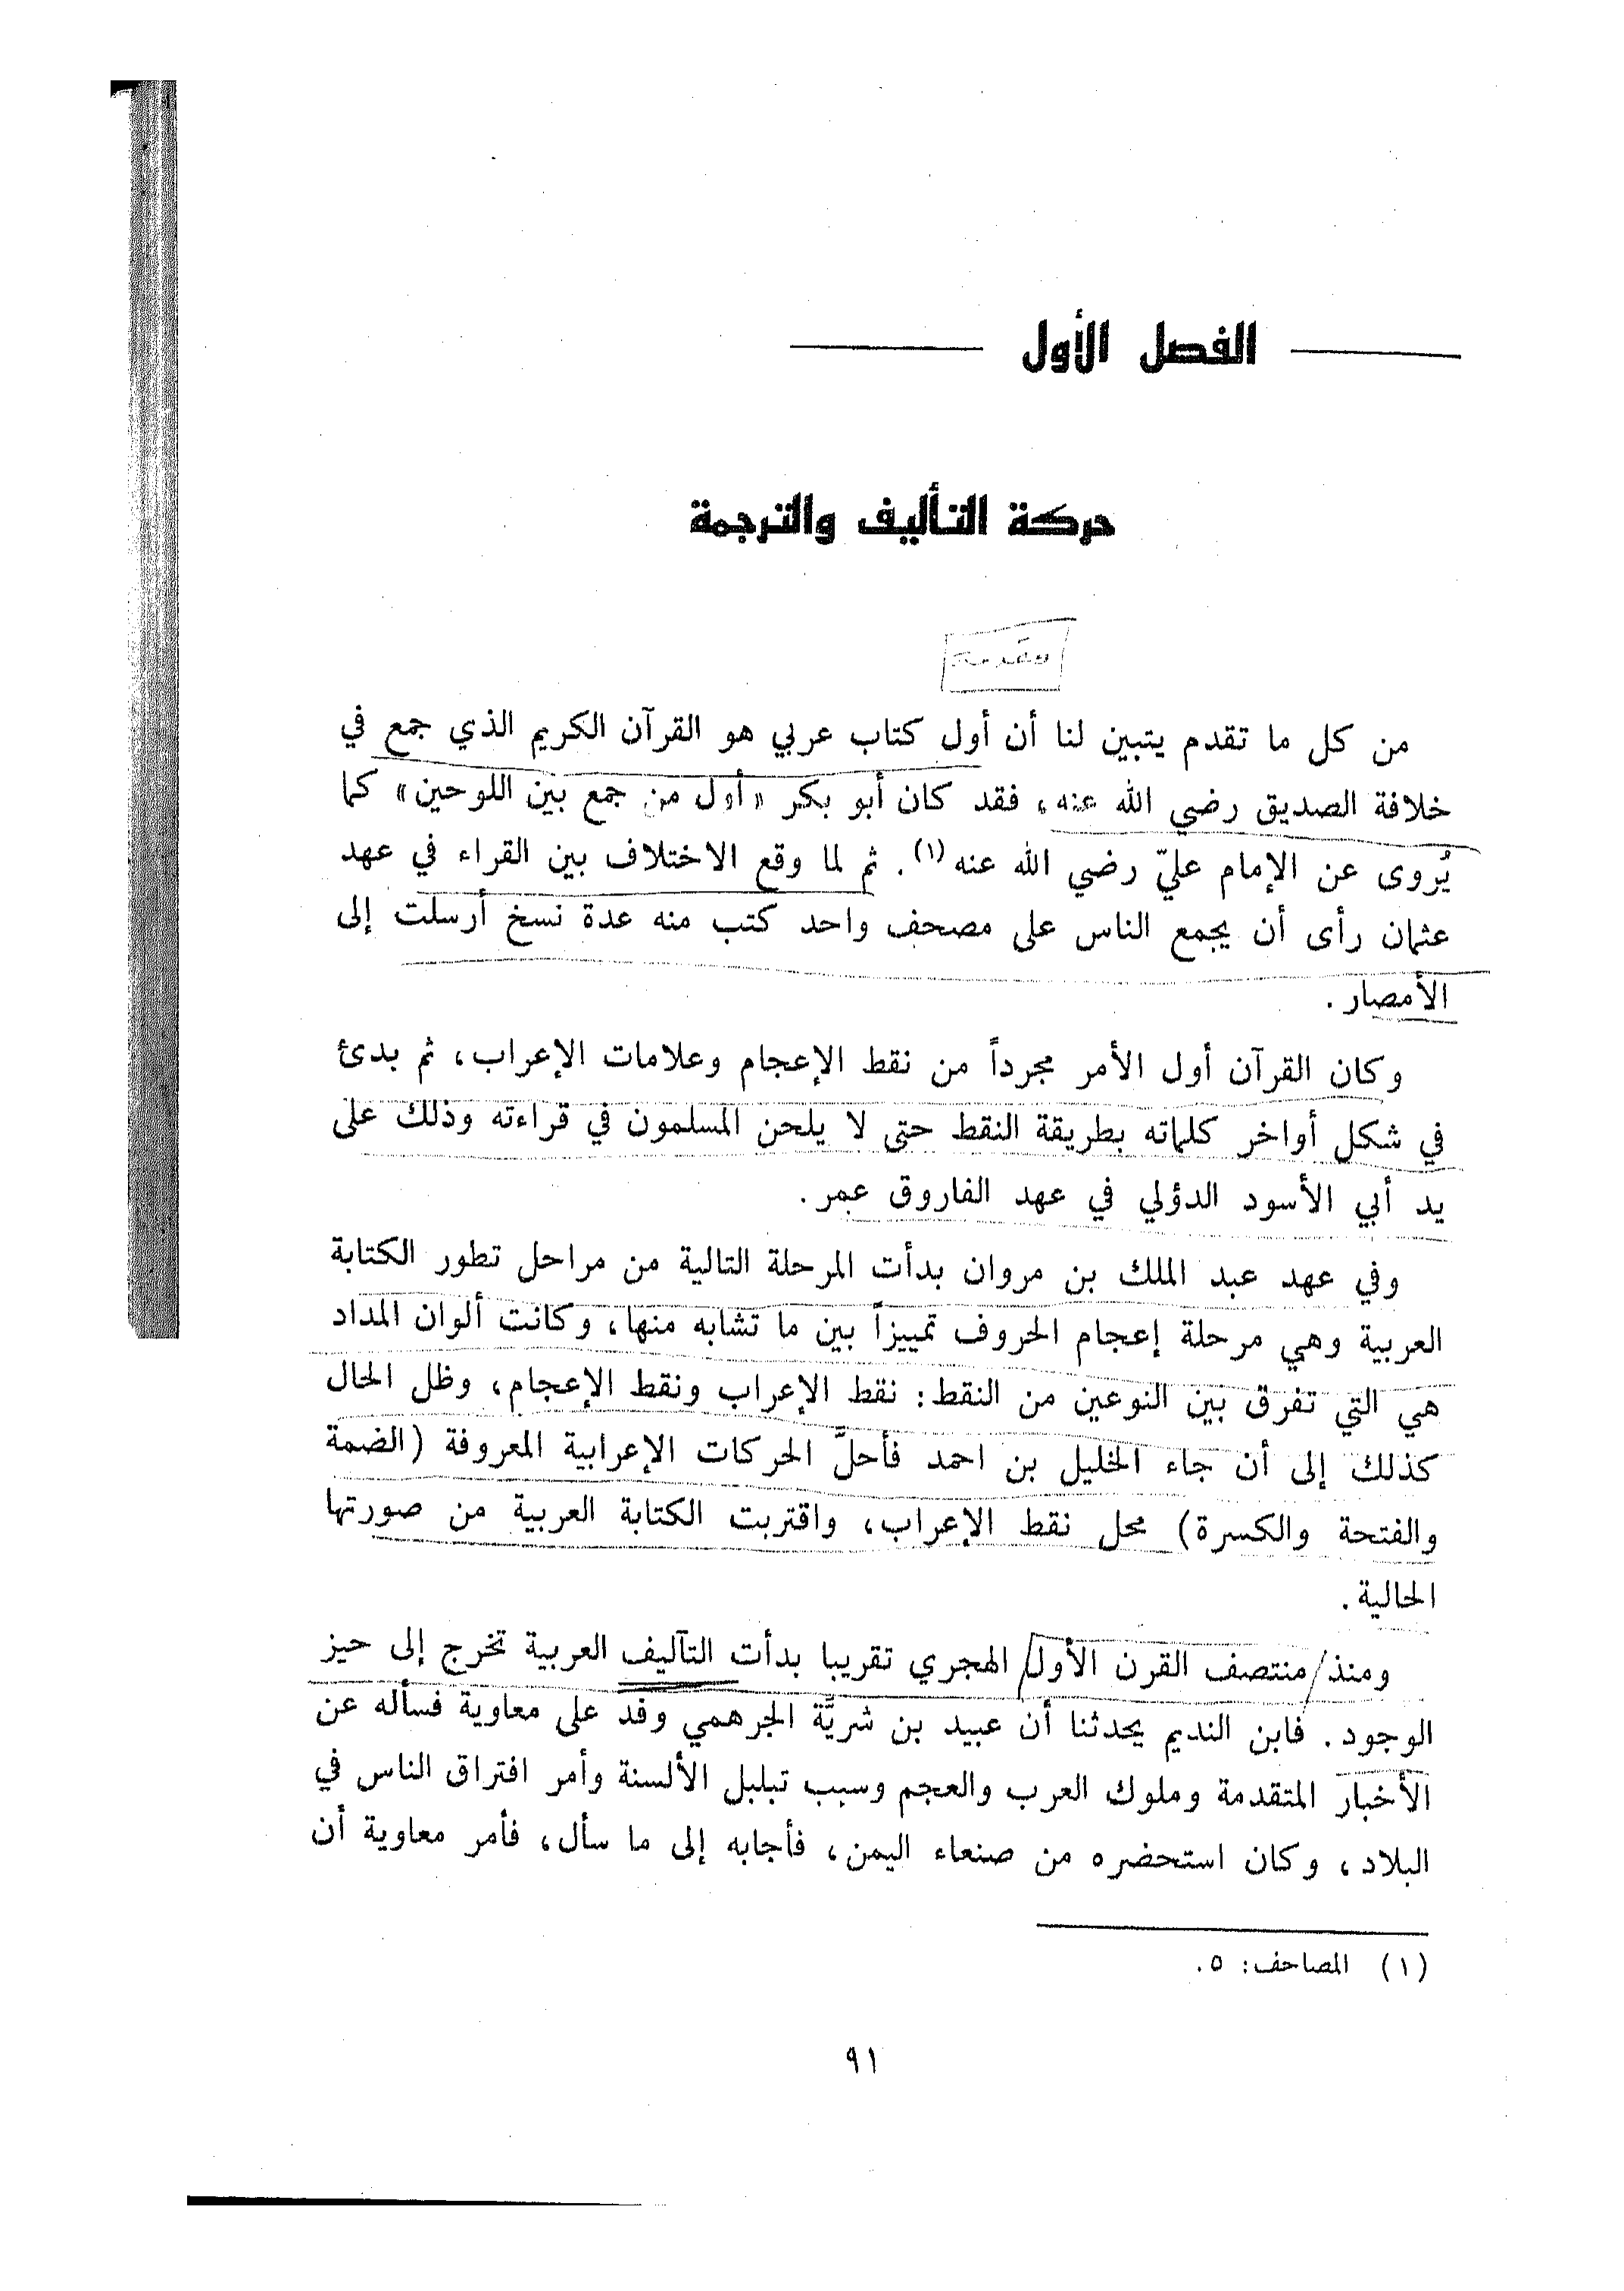 الفصل الأول
حركة التأليف والترجمة
مقدمة
من كل ما تقدم يتبين لنا أن أول كتاب عربي هو القرآن الكريم الذي جمع في
خلافة الصديق رضي الله عنه، فقد كان أبو بكر «أول من جمع بين اللوحين» كما
يُروى عن الإمام عليّ رضي الله عنه (١). ثم لما وقع الاختلاف بين القراء في عهد
عثمان رأى أن يجمع الناس على مصحف واحد كتب منه عدة نسخ أرسلت إلى
الأمصار.
وكان القرآن أول الأمر مجرداً من نقط الإعجام وعلامات الإعراب، ثم بدئ
في شكل أواخر كلماته بطريقة النقط حتى لا يلحن المسلمون في قراءته وذلك على
يد أبي الأسود الدؤلي في عهد الفاروق عمر.
وفي عهد عبد الملك بن مروان بدأت المرحلة التالية من مراحل تطور الكتابة
العربية وهي مرحلة إعجام الحروف تمييزاً بين ما تشابه منها، وكانت ألوان المداد
هي التي تفرق بين النوعين من النقط: نقط الإعراب ونقط الإعجام، وظل الحال
كذلك إلى أن جاء الخليل بن احمد فأحلَّ الحركات الإعرابية المعروفة (الضمة
والفتحة والكسرة) محل نقط الإعراب، واقتربت الكتابة العربية من صورتها
الحالية.
ومنذ منتصف القرن الأول الهجري تقريبا بدأت التآليف العربية تخرج إلى حيز
الوجود. فابن النديم يحدثنا أن عبيد بن شريَّة الجرهمي وفد على معاوية فسأله عن
الأخبار المتقدمة وملوك العرب والعجم وسبب تبلبل الألسنة وأمر افتراق الناس في
البلاد، وكان استحضره من صنعاء اليمن، فأجابه إلى ما سأل، فأمر معاوية أن
(١) المصاحف: ٥.
٩١